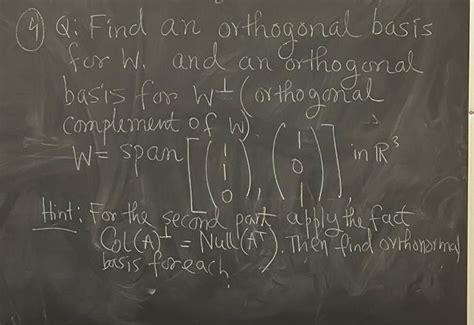 ④ Q: Find an orthogonal basis
for W. and an orthogonal
basis for W⊥ (orthogonal
complement of W).
W = span [(1 1 0), (1 0 1)] in ℝ³
Hint: For the second part apply the fact
Col(A)⊥ = Null(Aᵀ). Then find orthonormal
basis for each